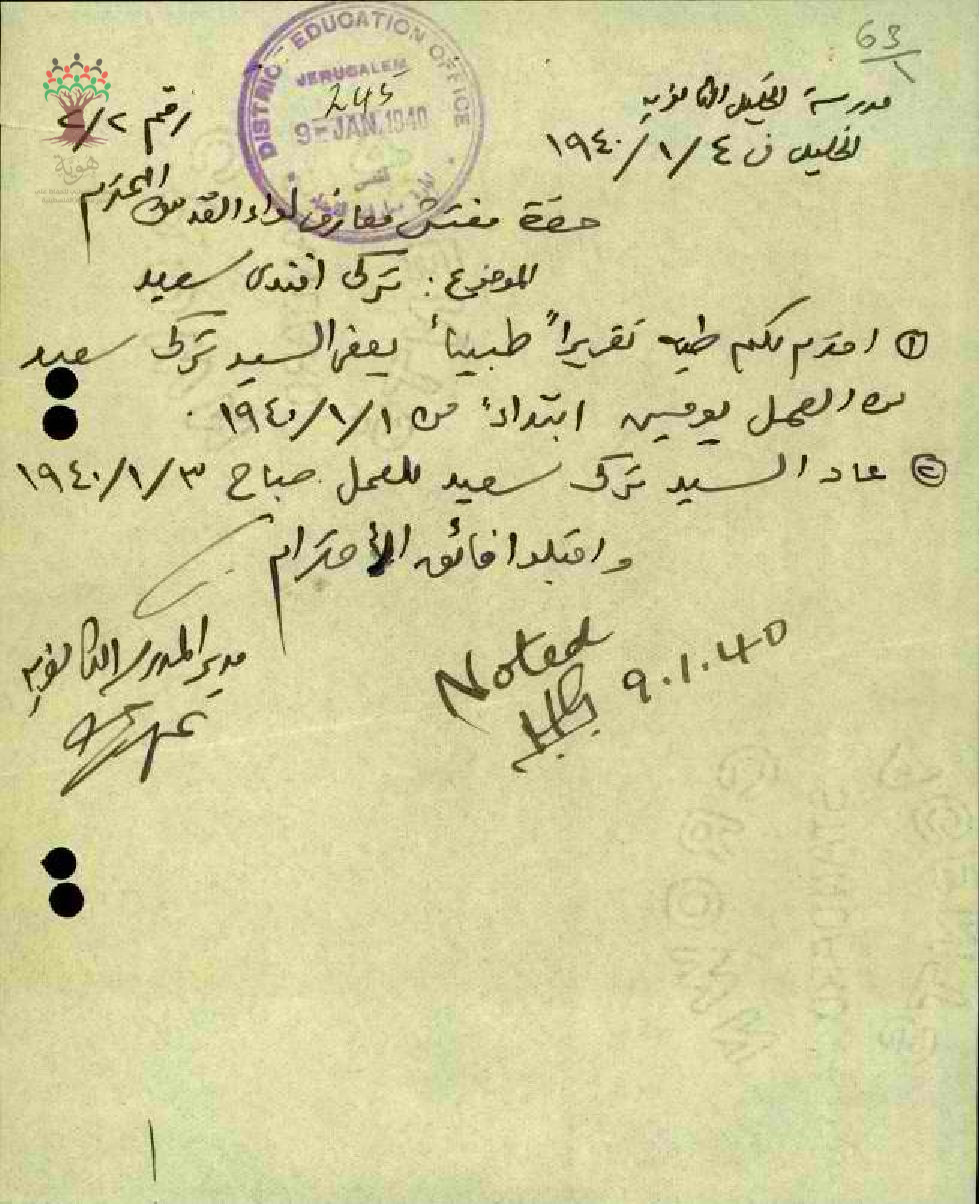 63/1
مدرسة الخليل الثانوية
الخليل في ٤/١/١٩٤٠
رقم ٢/٢
DISTRICT EDUCATION OFFICE
JERUSALEM
245
9 - JAN. 1940
القدس
هوية
حضرة مفتش معارف لواء القدس المحترم
الموضوع: تركي افندي سعيد
① اقدم لكم طيه تقريراً طبياً يعفي السيد تركي سعيد
من العمل يومين ابتداءً من ١/١/١٩٤٠.
② عاد السيد تركي سعيد للعمل صباح ٣/١/١٩٤٠
واقبلوا فائق الاحترام
مدير المدرسة الثانوية
Noted
9.1.40